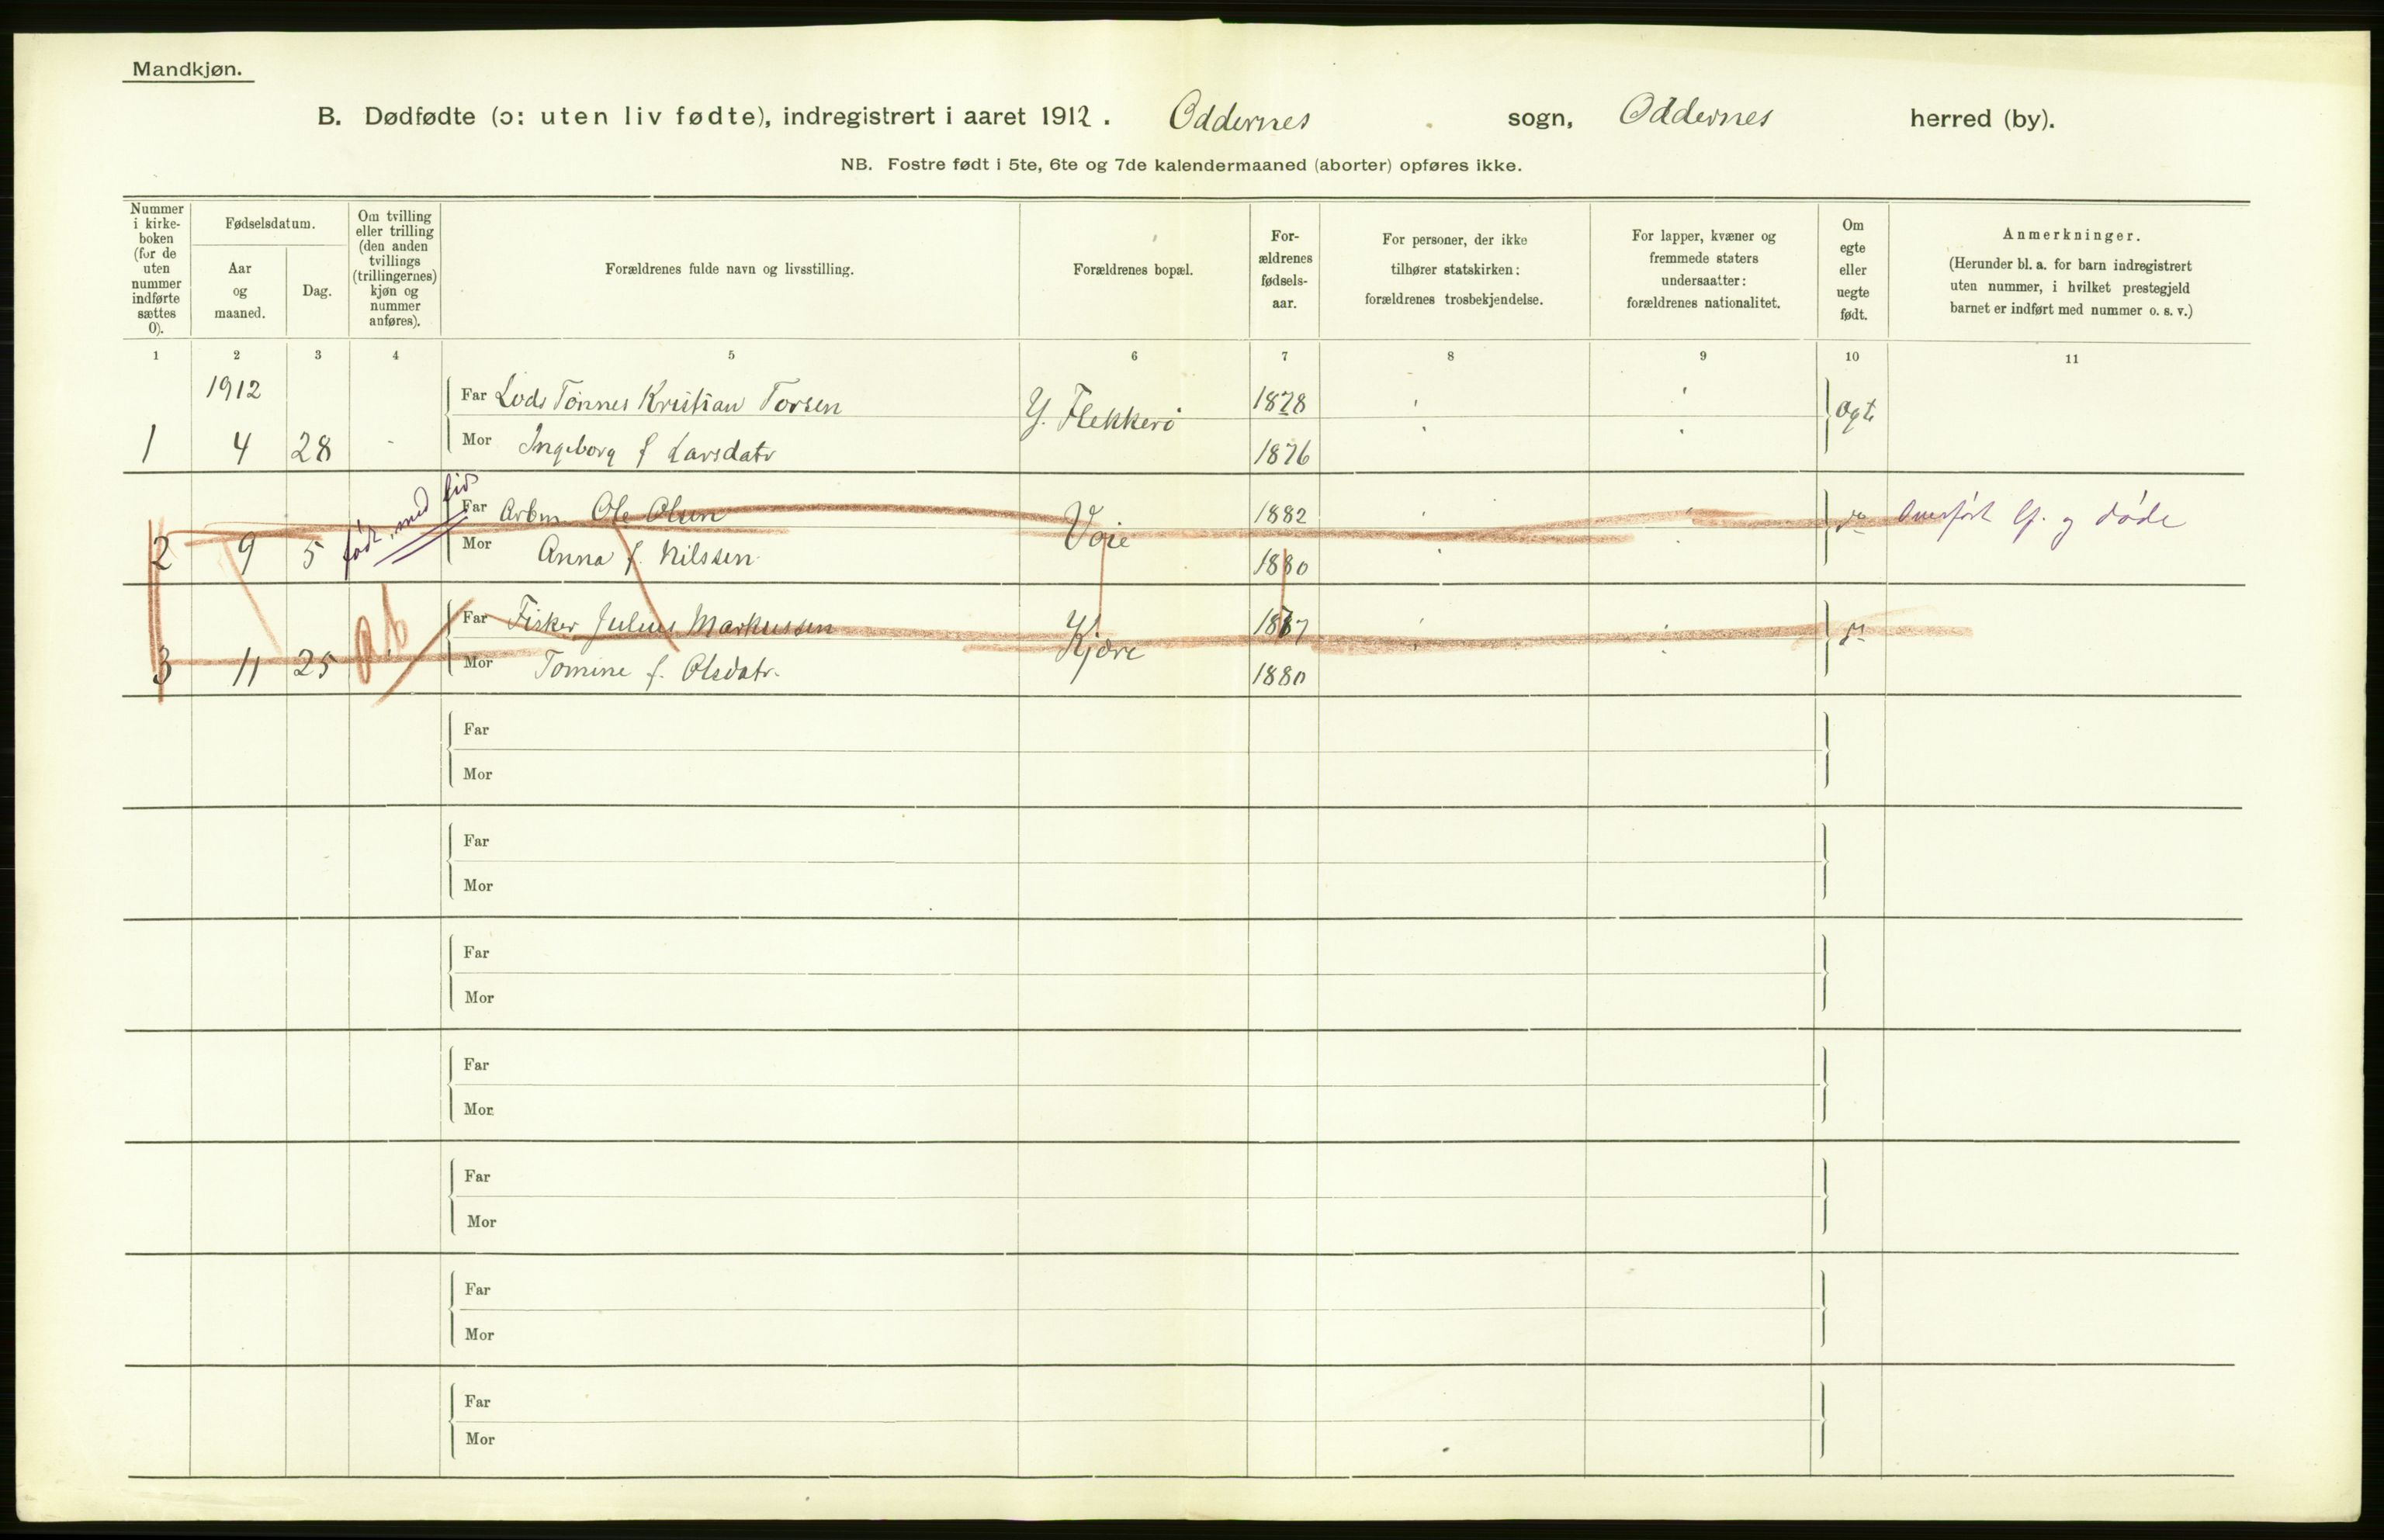 Mandkjøn.
B. Dødfødte (ɔ: uten liv fødte), indregistrert i aaret 1912. Oddernes sogn, Oddernes herred (by).
NB. Fostre født i 5te, 6te og 7de kalendermaaned (aborter) opføres ikke.
Nummer
i kirke-
boken
(for de
uten
nummer
indførte
sættes
0).
Fødselsdatum.
Aar
og
maaned.
Dag.
Om tvilling
eller trilling
(den anden
tvillings
(trillingernes)
kjøn og
nummer
anføres).
Forældrenes fulde navn og livsstilling.
Forældrenes bopæl.
For-
ældrenes
fødsels-
aar.
For personer, der ikke
tilhører statskirken:
forældrenes trosbekjendelse.
For lapper, kvæner og
fremmede staters
undersaatter:
forældrenes nationalitet.
Om
egte
eller
uegte
født.
Anmerkninger.
(Herunder bl. a. for barn indregistrert
uten nummer, i hvilket prestegjeld
barnet er indført med nummer o. s. v.)
1 2 3 4 5 6 7 8 9 10 11
1912 Far Lods Tønnes Kristian Torsen Y. Flekkerø 1878 " " ægte
1 4 28 - Mor Ingeborg f Larsdatr 1876 " "
født med liv Far Arbm Ole Olsen Voie 1882 " " do Overført lf. og døde
2 9 5 Mor Anna f. Nilssen 1880 " "
ab Far Fisker Julius Markussen Kjære 1887 " " do
3 11 25 " Mor Tomine f. Olsdatr. 1880 "
Far
Mor
Far
Mor
Far
Mor
Far
Mor
Far
Mor
Far
Mor
Far
Mor